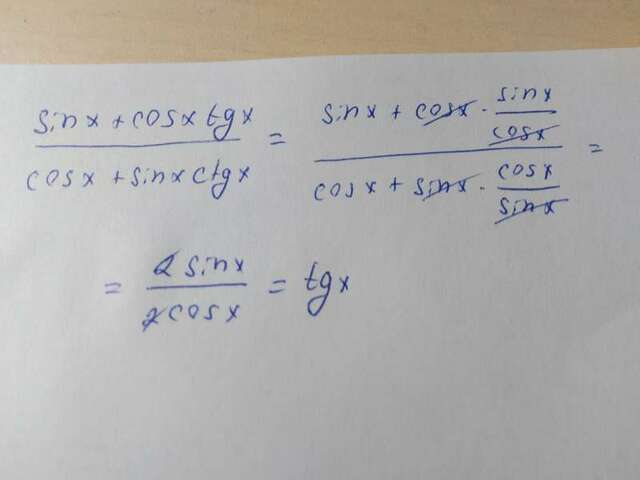 (sin x + cos x tg x) / (cos x + sin x ctg x) = (sin x + cos x · sin x / cos x) / (cos x + sin x · cos x / sin x) =
= 2 sin x / 2 cos x = tg x